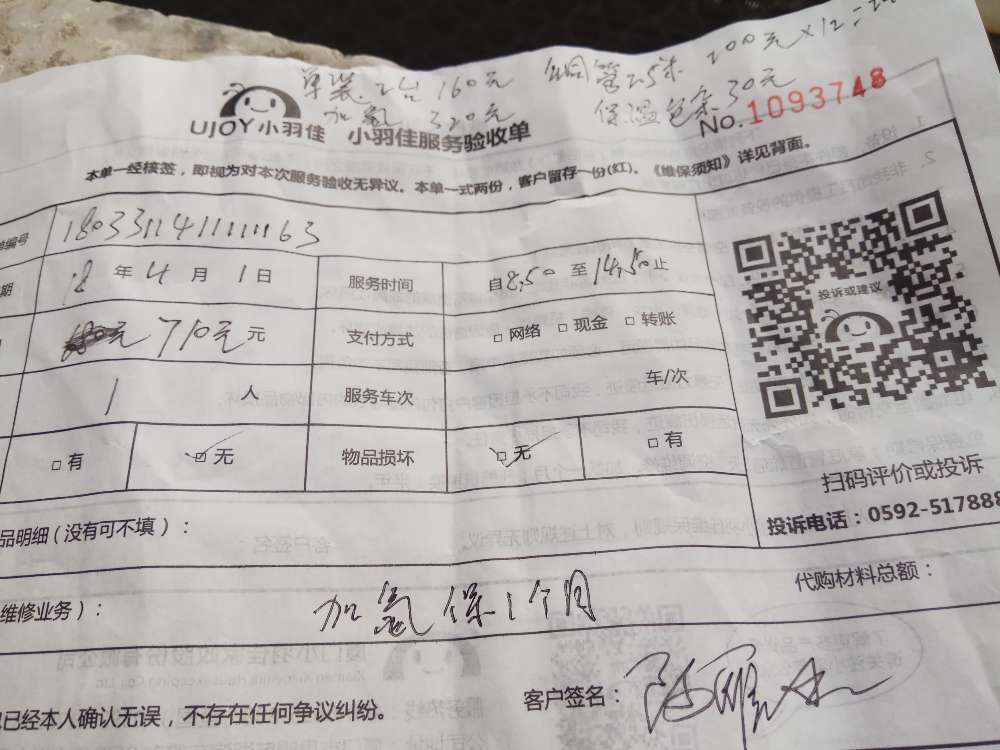 单装2台160元 铜管2.5米 200元×12=2
加氟 320元 保温包条30元
UJOY小羽佳 小羽佳服务验收单 No.1093748
本单一经核签，即视为对本次服务验收无异议。本单一式两份，客户留存一份(红)。《维保须知》详见背面。
单编号 18033114111111163
期 18年4月1日 服务时间 自8.50至14.50止
710元元 支付方式 □网络 □现金 □转账
1 人 服务车次 车/次
□有 □无 物品损坏 □无 □有
投诉或建议
扫码评价或投诉
投诉电话：0592-517888
品明细(没有可不填)：
代购材料总额：
维修业务)： 加氟保1个月
已经本人确认无误，不存在任何争议纠纷。 客户签名：